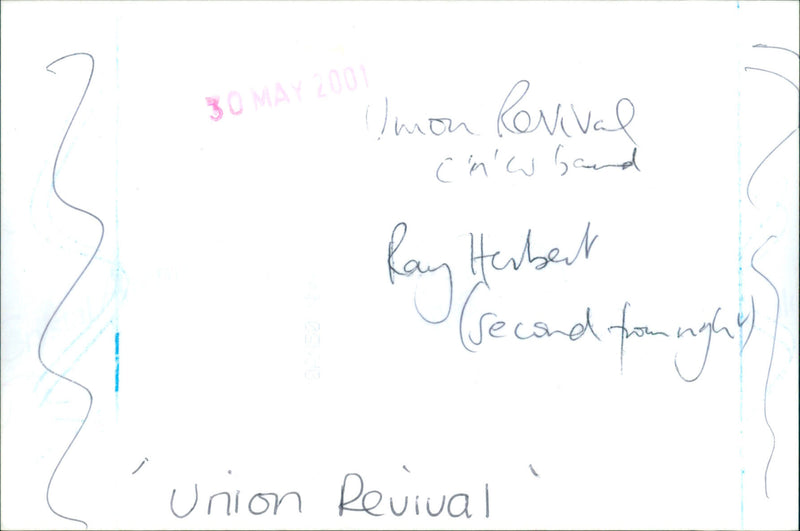 30 MAY 2001
Union Revival
c'n'w band
Ray Herbert
(second from right)
'Union Revival'